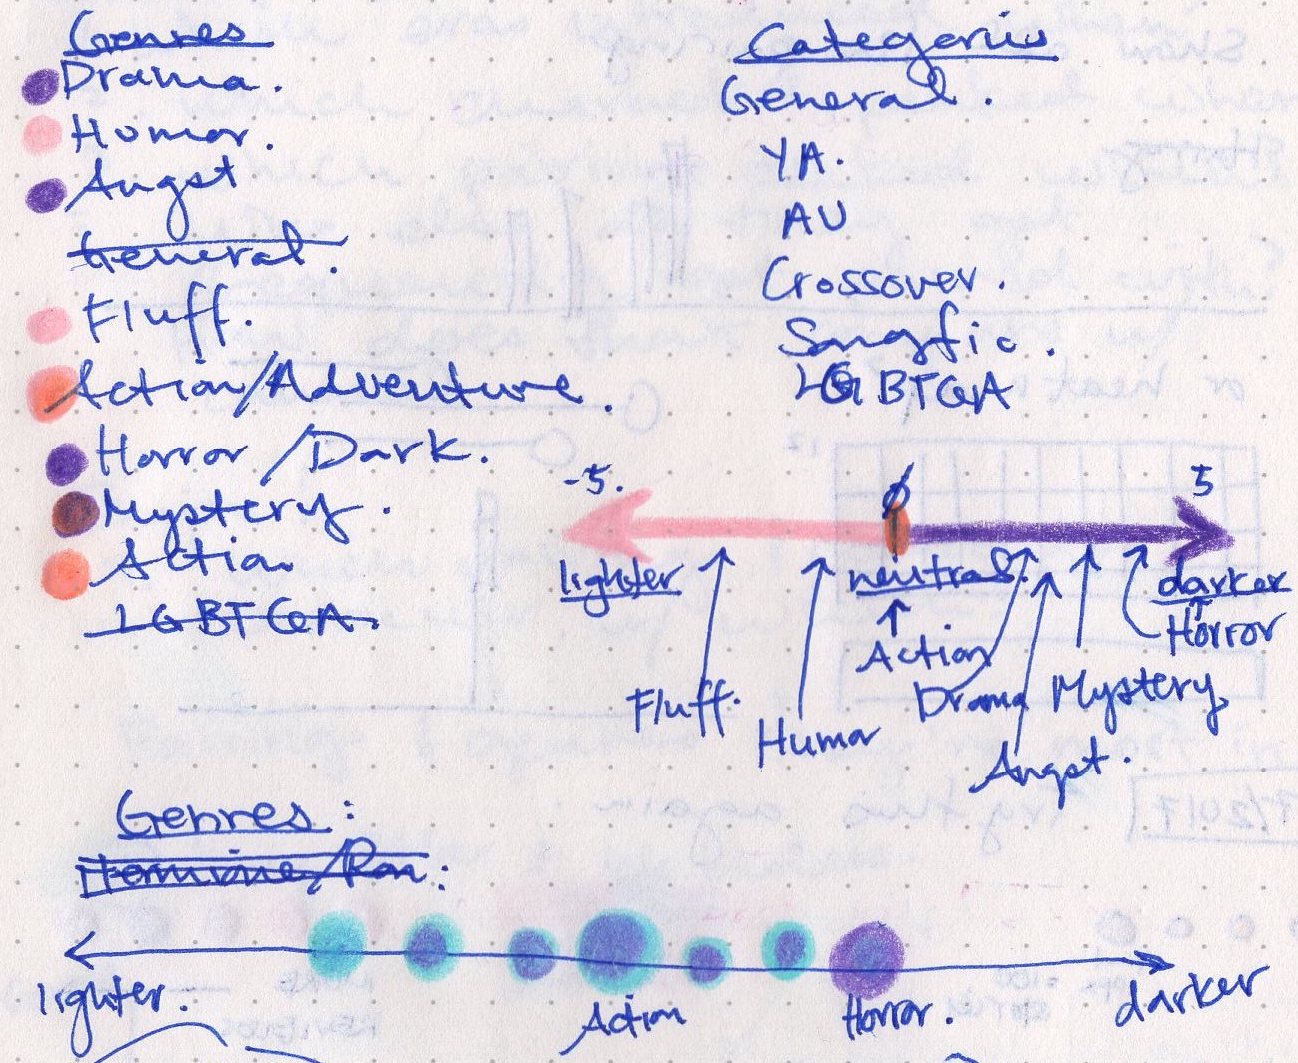 Genres
Drama.
Humor.
Angst
General.
Fluff.
Action/Adventure.
Horror/Dark.
Mystery.
Action
LGBTQA.
Categories
General.
YA.
AU
Crossover.
Songfic.
LGBTQA
-5.
0
5
lighter
neutral
darker
Fluff.
Humor
Action
Drama
Angst.
Mystery
Horror
Genres:
Hermione/Ron:
lighter.
Action
Horror.
darker